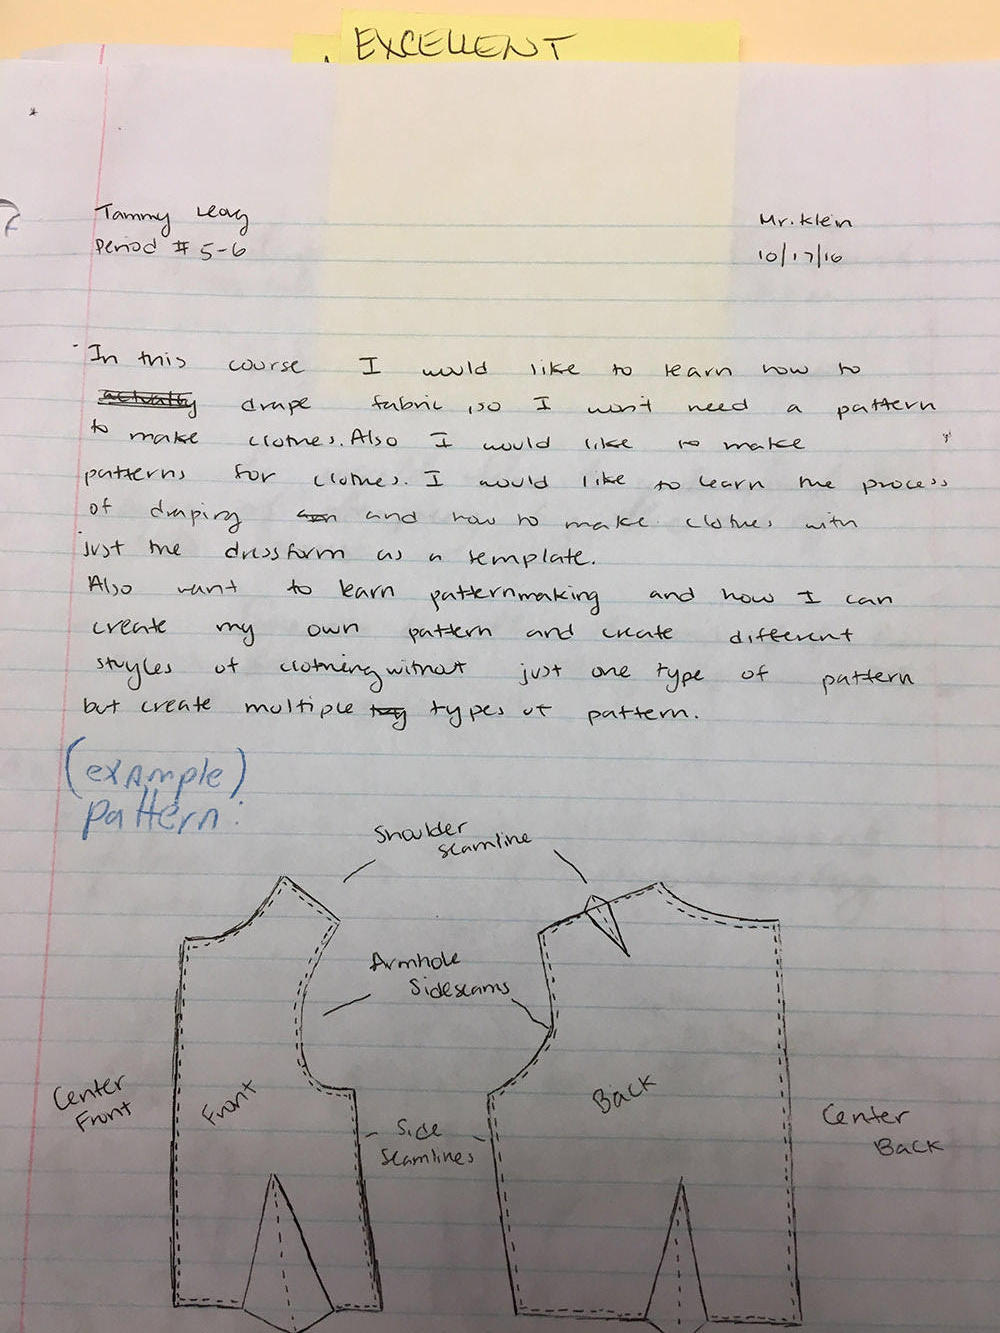 EXCELLENT
Tammy Leavg
Mr. Klein
Period # 5-6
10/17/16
In this course I would like to learn how to
actually drape fabric, so I won't need a pattern
to make clothes. Also I would like to make
patterns for clothes. I would like to learn the process
of draping and how to make clothes with
just the dressform as a template.
Also want to learn patternmaking and how I can
create my own pattern and create different
styles of clothing without just one type of pattern
but create multiple types of pattern.
(example)
pattern:
Shoulder
Seamline
Armhole
Sideseams
Center
Front
Front
Back
Side
Seamlines
Center
Back